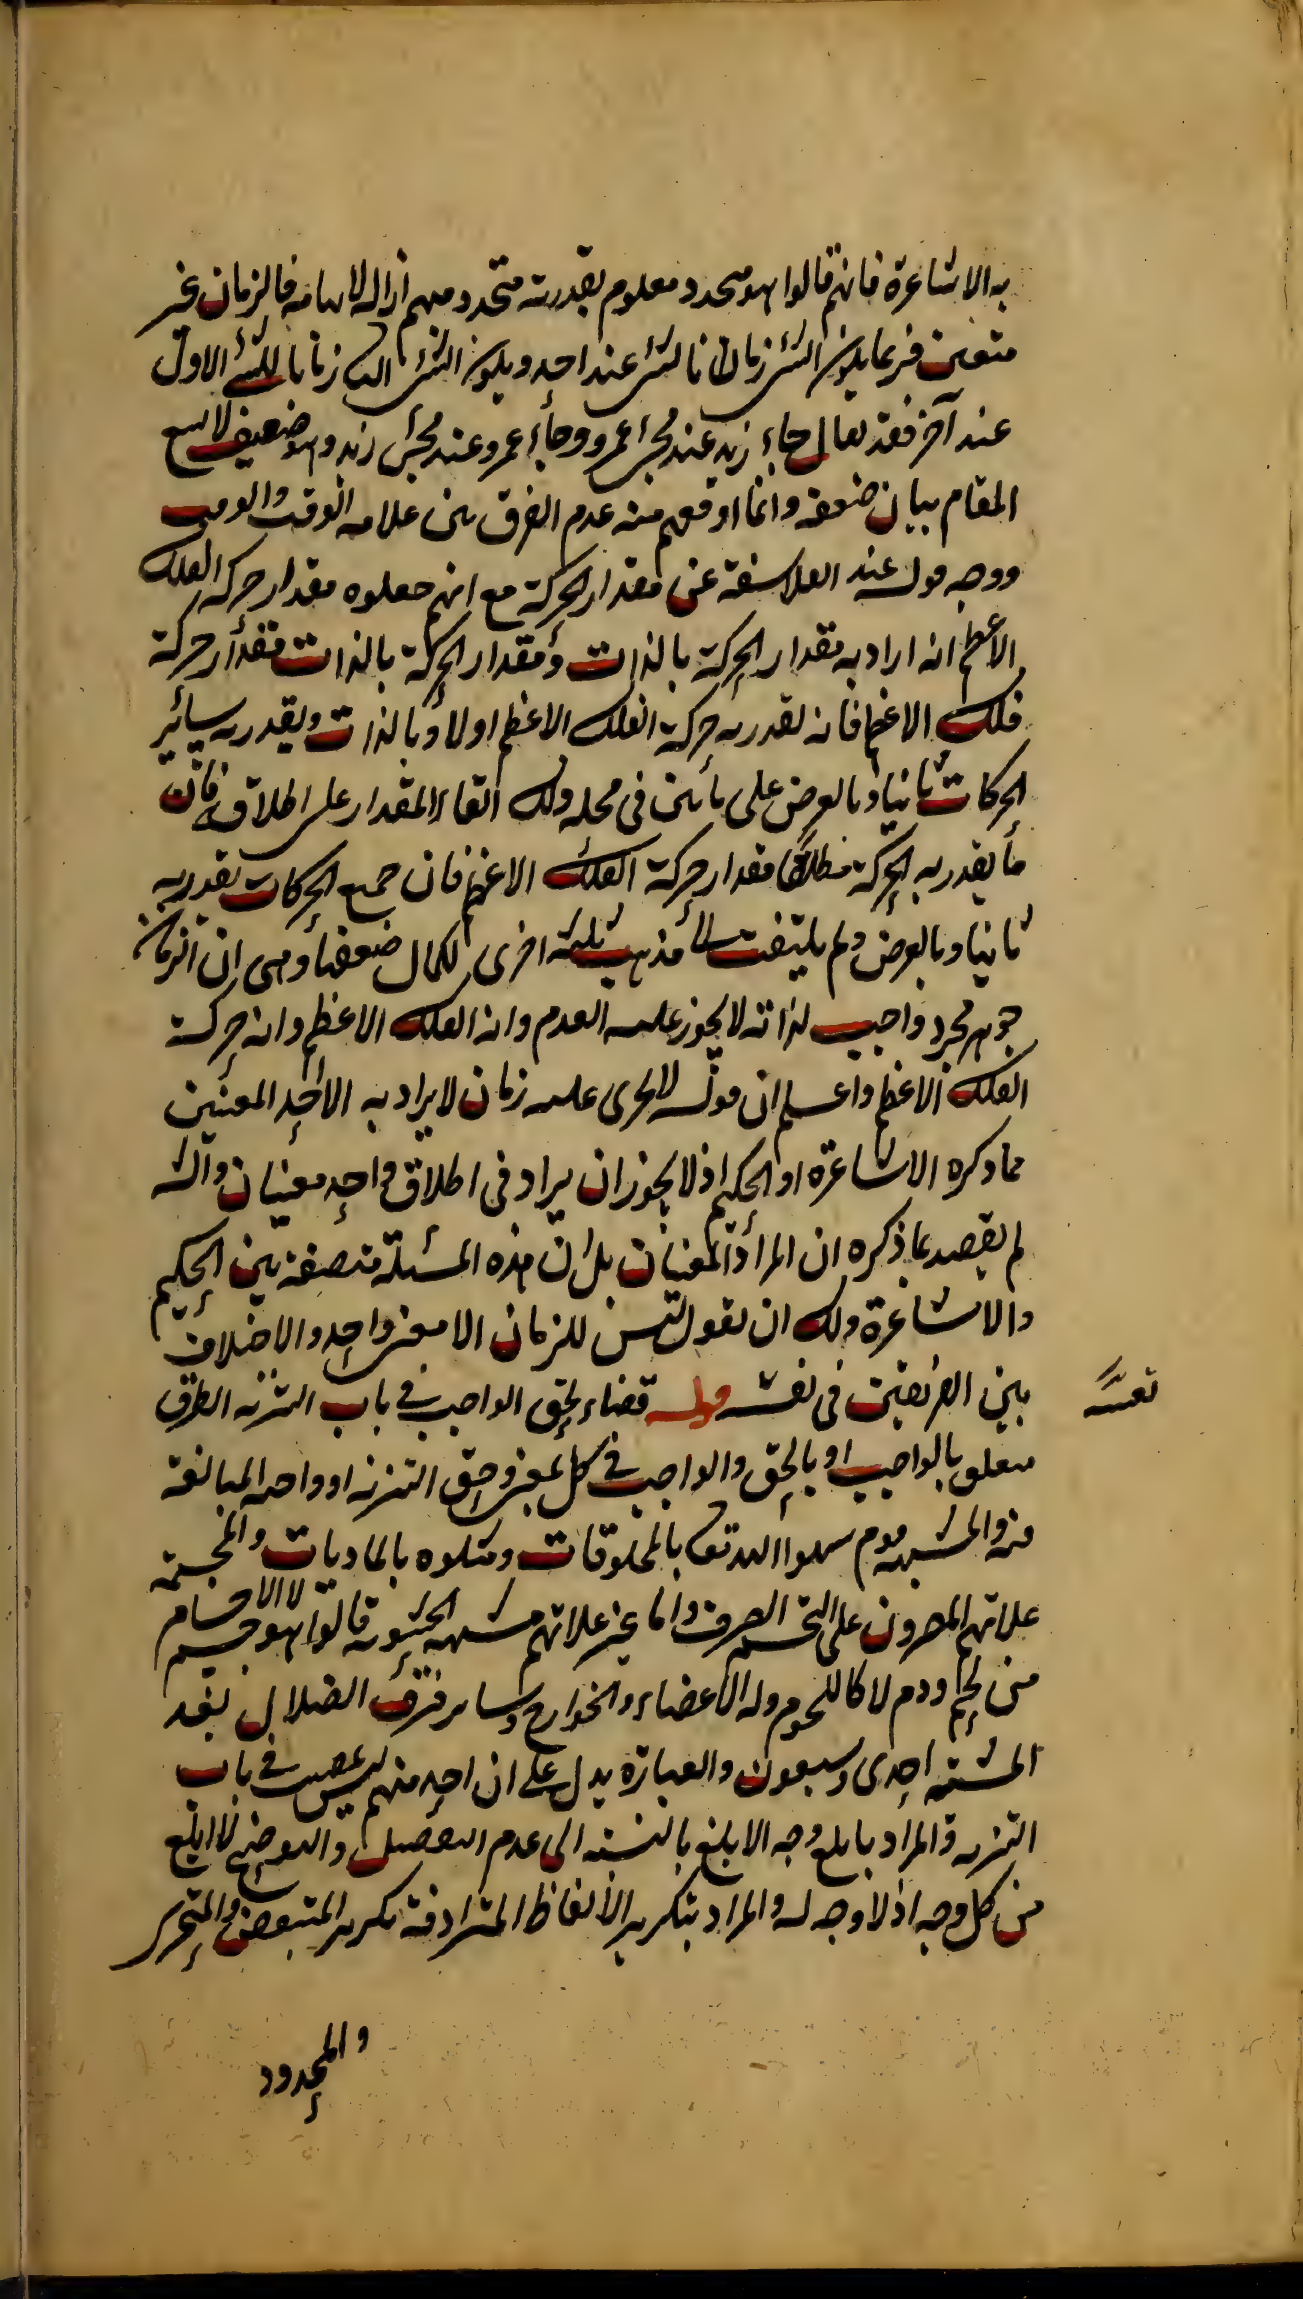 به الاشاعرة فانهم قالوا هو متجدد معلوم يقدر به متجدد مبهم ازالة لابهامه فالزمان غير
متعين فربما يكون الشئ زمانا لشئ عند احد ويكون الشئ الثانى زمانا للشئ الاول
عند آخر فقد يقال جاء زيد عند مجئ عمرو وجاء عمرو عند مجئ زيد وهو ضعيف لا يسع
المقام بيان ضعفه وانما اوقعهم فيه عدم الفرق بين علامة الوقت والوقت
ووجه قوله عند الفلاسفة عن مقدار الحركة مع انهم جعلوه مقدار حركة الفلك
الاعظم انه اراد به مقدار الحركة بالذات ومقدار الحركة بالذات مقدار حركة
فلك الاعظم فانه يقدر به حركة الفلك الاعظم اولا وبالذات ويقدر به سائر
الحركات ثانيا وبالعرض على ما بين فى محله ولك ابقاء المقدار على اطلاقه فان
ما يقدر به الحركة مطلقا مقدار حركة الفلك الاعظم فان جميع الحركات يقدر به
ثانيا وبالعرض ولم يلتفت الى مذاهب ثلثة اخرى لكمال ضعفها وهى ان الزمان
جوهر مجرد واجب لذاته لا يجوز عليه العدم وانه الفلك الاعظم وانه حركة
الفلك الاعظم واعلم ان قوله لا يجرى عليه زمان لا يراد به الا احد المعنيين
مما ذكره الاشاعرة او الحكيم اذ لا يجوز ان يراد فى اطلاق واحد معنيان والشـ
لم يقصد بما ذكره ان المراد المعنيان بل ان هذه المسئلة متصفة بين الحكيم
والاشاعرة ولك ان تقول ليس للزمان الا معنى واحد والاختلاف
بين الفريقين فى نفسه قوله قضاء لحق الواجب فى باب التنزيه الظرف
متعلق بالواجب او بالحق والواجب فى كل بمعنى وحق التنزيه او واجبه المبالغة
فيه والمشبهة قوم شبهوا الله تعالى بالمخلوقات ومثلوه بالماديات والمجسمة
غلاتهم المصرون على التجسم الصرف واما غير غلاتهم مشبهة الحشوية قالوا هو جسم لا كالاجسام
من لحم ودم لا كاللحوم وله الاعضاء والجوارح وسائر فرق الضلال بعد
المشبهة احدى وسبعون والعبارة يدل على ان احد منهم ليس بمصيب فى باب
التنزيه والمراد بابلغ وجه الابلغ بالنسبة الى عدم التفصيل والتوضيح لا ابلغ
من كل وجه اذ لا وجه له والمراد بتكرير الالفاظ المترادفة تكرير المتبعض والمتجزى
والمحدود